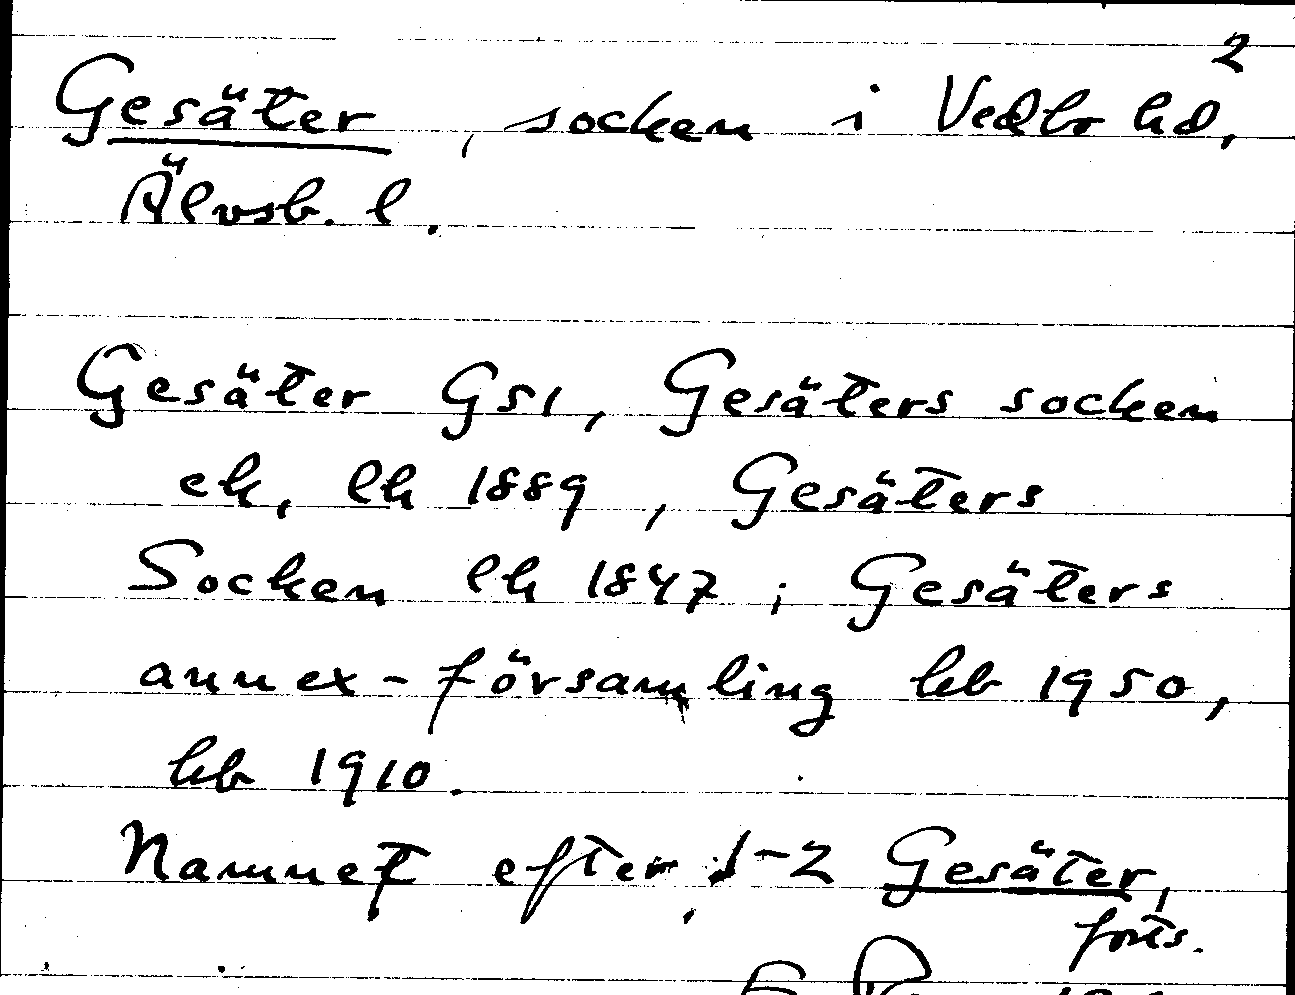 2
Gesäter, socken i Vedbo hd,
Älvsb. l.
Gesäter GS1, Gesäters socken
ek, lk 1889, Gesäters
Socken lk 1847; Gesäters
annex-församling kb 1950,
kb 1910.
Namnet efter 1-2 Gesäter,
forts.